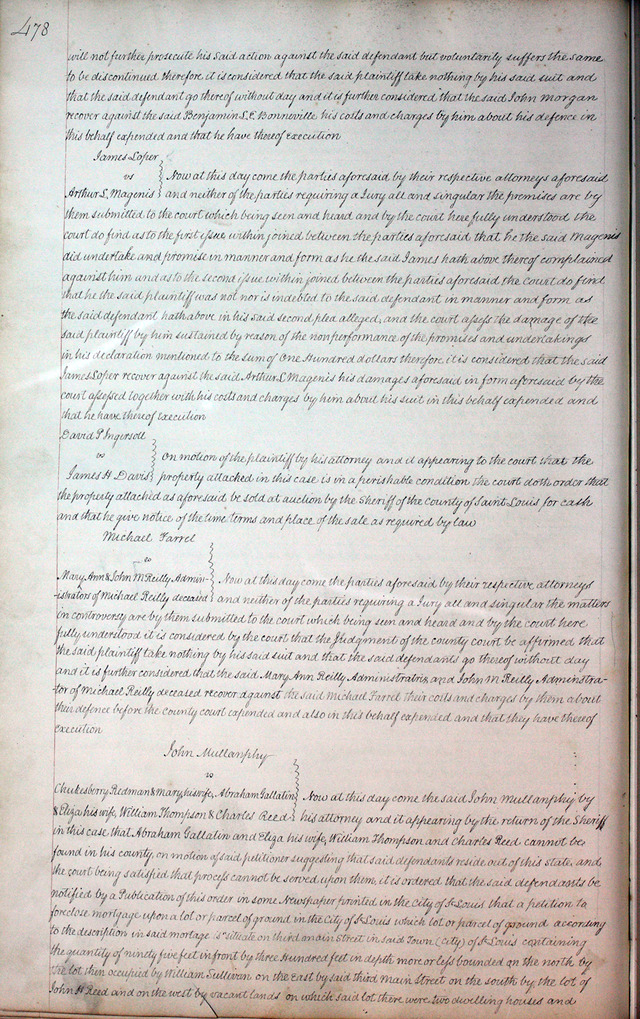 478
will not further prosecute his said action against the said defendant but voluntarily suffers the same
to be discontinued therefore it is considered that the said plaintiff take nothing by his said suit and
that the said defendant go thereof without day and it is further considered that the said John Morgan
recover against the said Benjamin L. E. Bonneville his costs and charges by him about his defence in
this behalf expended and that he have thereof execution
James Loper
vs Now at this day come the parties aforesaid by their respective attorneys aforesaid
Arthur L. Magenis and neither of the parties requiring a Jury all and singular the premises are by
them submitted to the court which being seen and heard and by the court here fully understood the
court do find as to the first issue within joined between the parties aforesaid that he the said Magenis
did undertake and promise in manner and form as he the said James hath above thereof complained
against him and as to the second issue within joined between the parties aforesaid the court do find
that he the said plaintiff was not nor is indebted to the said defendant in manner and form as
the said defendant hath above in his said second plea alleged, and the court assess the damage of the
said plaintiff by him sustained by reason of the nonperformance of the promises and undertakings
in his declaration mentioned to the sum of One Hundred dollars therefore it is considered that the said
James Loper recover against the said Arthur L Magenis his damages aforesaid in form aforesaid by the
court assessed together with his costs and charges by him about his suit in this behalf expended and
that he have thereof execution
David P. Ingersoll
vs On motion of the plaintiff by his attorney and it appearing to the court that the
James H Davis property attached in this case is in a perishable condition the court doth order that
the property attached as aforesaid be sold at auction by the Sheriff of the county of Saint Louis for cash
and that he give notice of the time terms and place of the sale as required by law
Michael Farrel
vs
Mary Ann & John M Reilly Admin- Now at this day come the parties aforesaid by their respective attorneys
istrators of Michael Reilly deceased and neither of the parties requiring a Jury all and singular the matters
in controversy are by them submitted to the court which being seen and heard and by the court here
fully understood it is considered by the court that the Judgment of the county court be affirmed that
the said plaintiff take nothing by his said suit and that the said defendants go thereof without day
and it is further considered that the said Mary Ann Reilly Administratrix and John M Reilly Administra-
tor of Michael Reilly deceased recover against the said Michael Farrel their costs and charges by them about
their defence before the county court expended and also in this behalf expended and that they have thereof
execution
John Mullanphy
vs
Chukesberry Redman & Mary his wife, Abraham Gallatin Now at this day come the said John Mullanphy by
& Eliza his wife, William Thompson & Charles Reed his attorney and it appearing by the return of the Sheriff
in this case that Abraham Gallatin and Eliza his wife, William Thompson and Charles Reed cannot be
found in his county, on motion of said petitioner suggesting that said defendants reside out of this state, and
the court being satisfied that process cannot be served upon them, it is ordered that the said defendants be
notified by a Publication of this order in some Newspaper printed in the city of St Louis that a petition to
foreclose mortgage upon a lot or parcel of ground in the City of St Louis which lot or parcel of ground according
to the description in said mortage is "situate on third main Street in said Town (city) of St Louis containing
the quantity of ninety five feet in front by three Hundred feet in depth more or less bounded on the north by
the lot then occupied by William Sullivan on the east by said third Main Street on the south by the lot of
John H Reed and on the west by vacant lands on which said lot there were two dwelling houses and